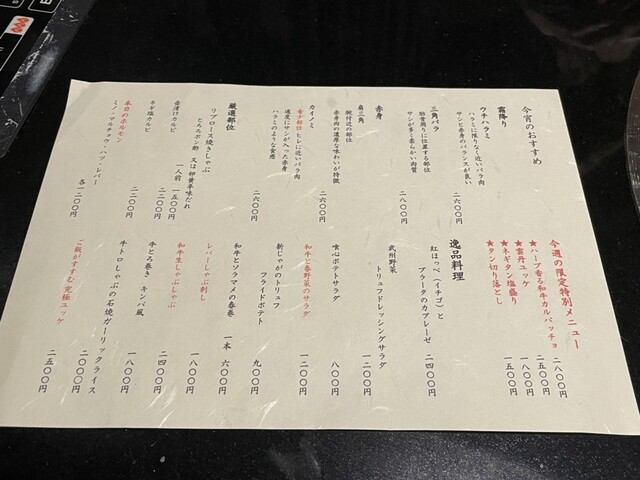 今宵のおすすめ
霜降り
ウチハラミ
ハラミに限りなく近いバラ肉
サシと赤身のバランスが良い
二六〇〇円
三角バラ
肋骨周りに位置する部位
サシが多く柔らかい肉質
二八〇〇円
赤身
肩三角
腕付近の部位
赤身肉の濃厚な味わいが特徴
二六〇〇円
カイノミ
希少部位 ヒレに近いバラ肉
適度にサシが入った赤身
ハラミのような食感
二六〇〇円
厳選部位
リブロース焼きしゃぶ
とろろポン酢 又は 卵黄辛味だれ
一人前 一五〇〇円
壺漬けカルビ
二二〇〇円
ネギ塩カルビ
二二〇〇円
本日のホルモン
ミノ・マルチョウ・ハツ・レバー
各一二〇〇円
今週の限定特別メニュー
★ハーブ香る和牛カルパッチョ
二八〇〇円
★雲丹ユッケ
二五〇〇円
★ネギタン塩盛り
一八〇〇円
★タン切り落とし
一五〇〇円
逸品料理
紅ほっぺ(イチゴ)と
ブラータのカプレーゼ
二四〇〇円
武州野菜
トリュフドレッシングサラダ
一二〇〇円
喰心ポテトサラダ
八〇〇円
和牛と春野菜のサラダ
一二〇〇円
新じゃがのトリュフ
フライドポテト
九〇〇円
和牛とソラマメの春巻
一本 六〇〇円
レバーしゃぶ刺し
一八〇〇円
和牛生しゃぶしゃぶ
二四〇〇円
牛とろ巻き キンパ風
一八〇〇円
牛トロしゃぶの石焼ガーリックライス
二五〇〇円
ご飯がすすむ 究極ユッケ
二五〇〇円